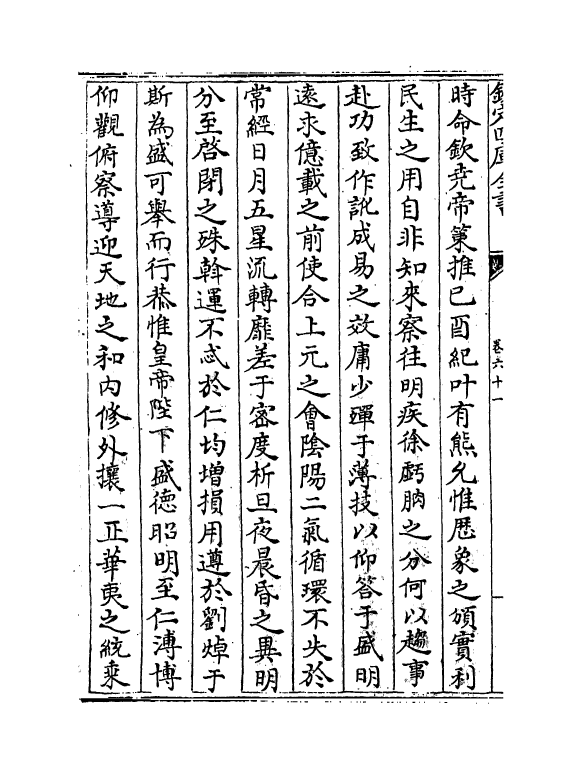 欽定四庫全書
卷六十一
時命欽堯帝策推己酉紀叶有熊允惟歷象之頒實利
民生之用自非知來察往明疾徐虧朒之分何以趨事
赴功致作訛成易之效庸少殫于薄技以仰答于盛明
遠求億載之前使合上元之會陰陽二氣循環不失於
常經日月五星流轉靡差于密度析旦夜晨昏之異明
分至啓閉之殊斡運不忒於仁均增損用遵於劉焯于
斯為盛可舉而行恭惟皇帝陛下盛德昭明至仁溥博
仰觀俯察導迎天地之和內修外攘一正華夷之統乘